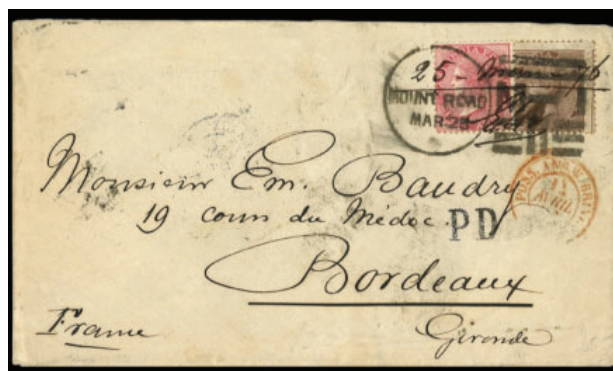 25 - 76
MOUNT ROAD
MAR 25
Monsieur Em. Baudry
19 cours du Médoc.
PD
Bordeaux
France
Gironde